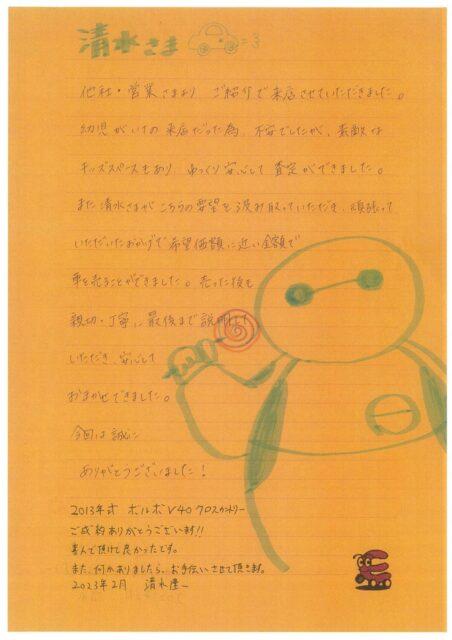 清水さま
他社・営業さまより、ご紹介で来店させていただきました。
幼児がいての来店だった為、不安でしたが、素敵な
キッズスペースもあり、ゆっくり安心して査定ができました。
また清水さまがこちらの要望を汲み取っていただき、頑張って
いただいたおかげで希望価額に近い金額で
車を売ることができました。売った後も
親切・丁寧に最後まで説明して
いただき、安心して
おまかせできました。
今回は誠に
ありがとうございました!
2013年式 ボルボV40クロスカントリー
ご成約ありがとうございます!!
喜んで頂けて良かったです。
また、何かありましたら、お手伝いさせて頂きます。
2023年2月 清水